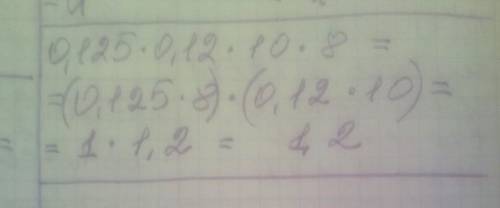 0,125·0,12·10·8 =
=(0,125·8)·(0,12·10)=
= 1·1,2 = 1,2